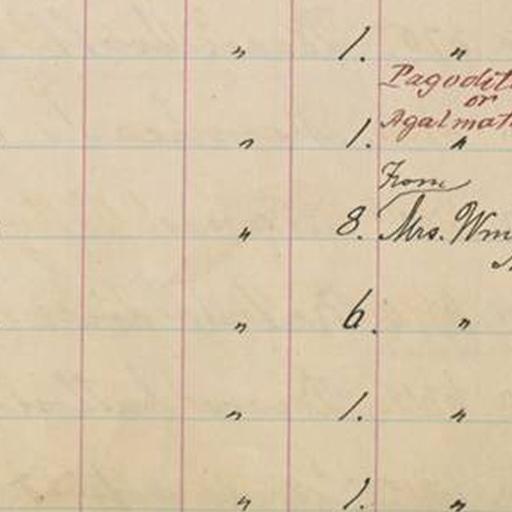 " 1. "
Pagodit
or
Agalmat
" 1. "
From
" 8. Mrs. Wm
" 6. "
" 1. "
" 1. "